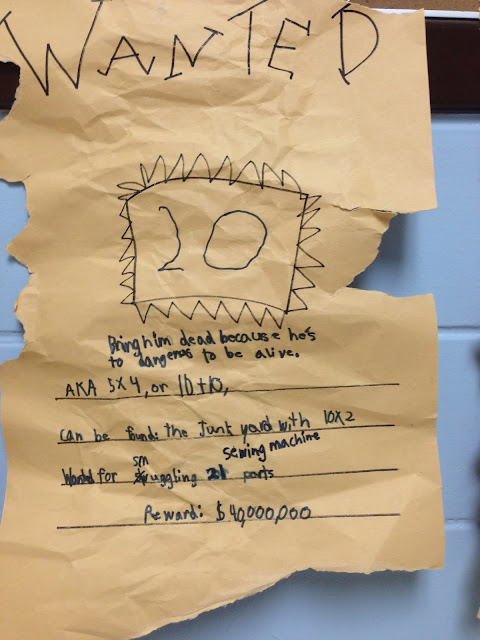 WANTED
20
Bring him dead because he's
to dangerus to be alive.
AKA 5X4, or 10+10,
can be found: the Junk yard with 10X2
sm sewing machine
Wanted for uggling 21 parts
Reward: $40,000,000